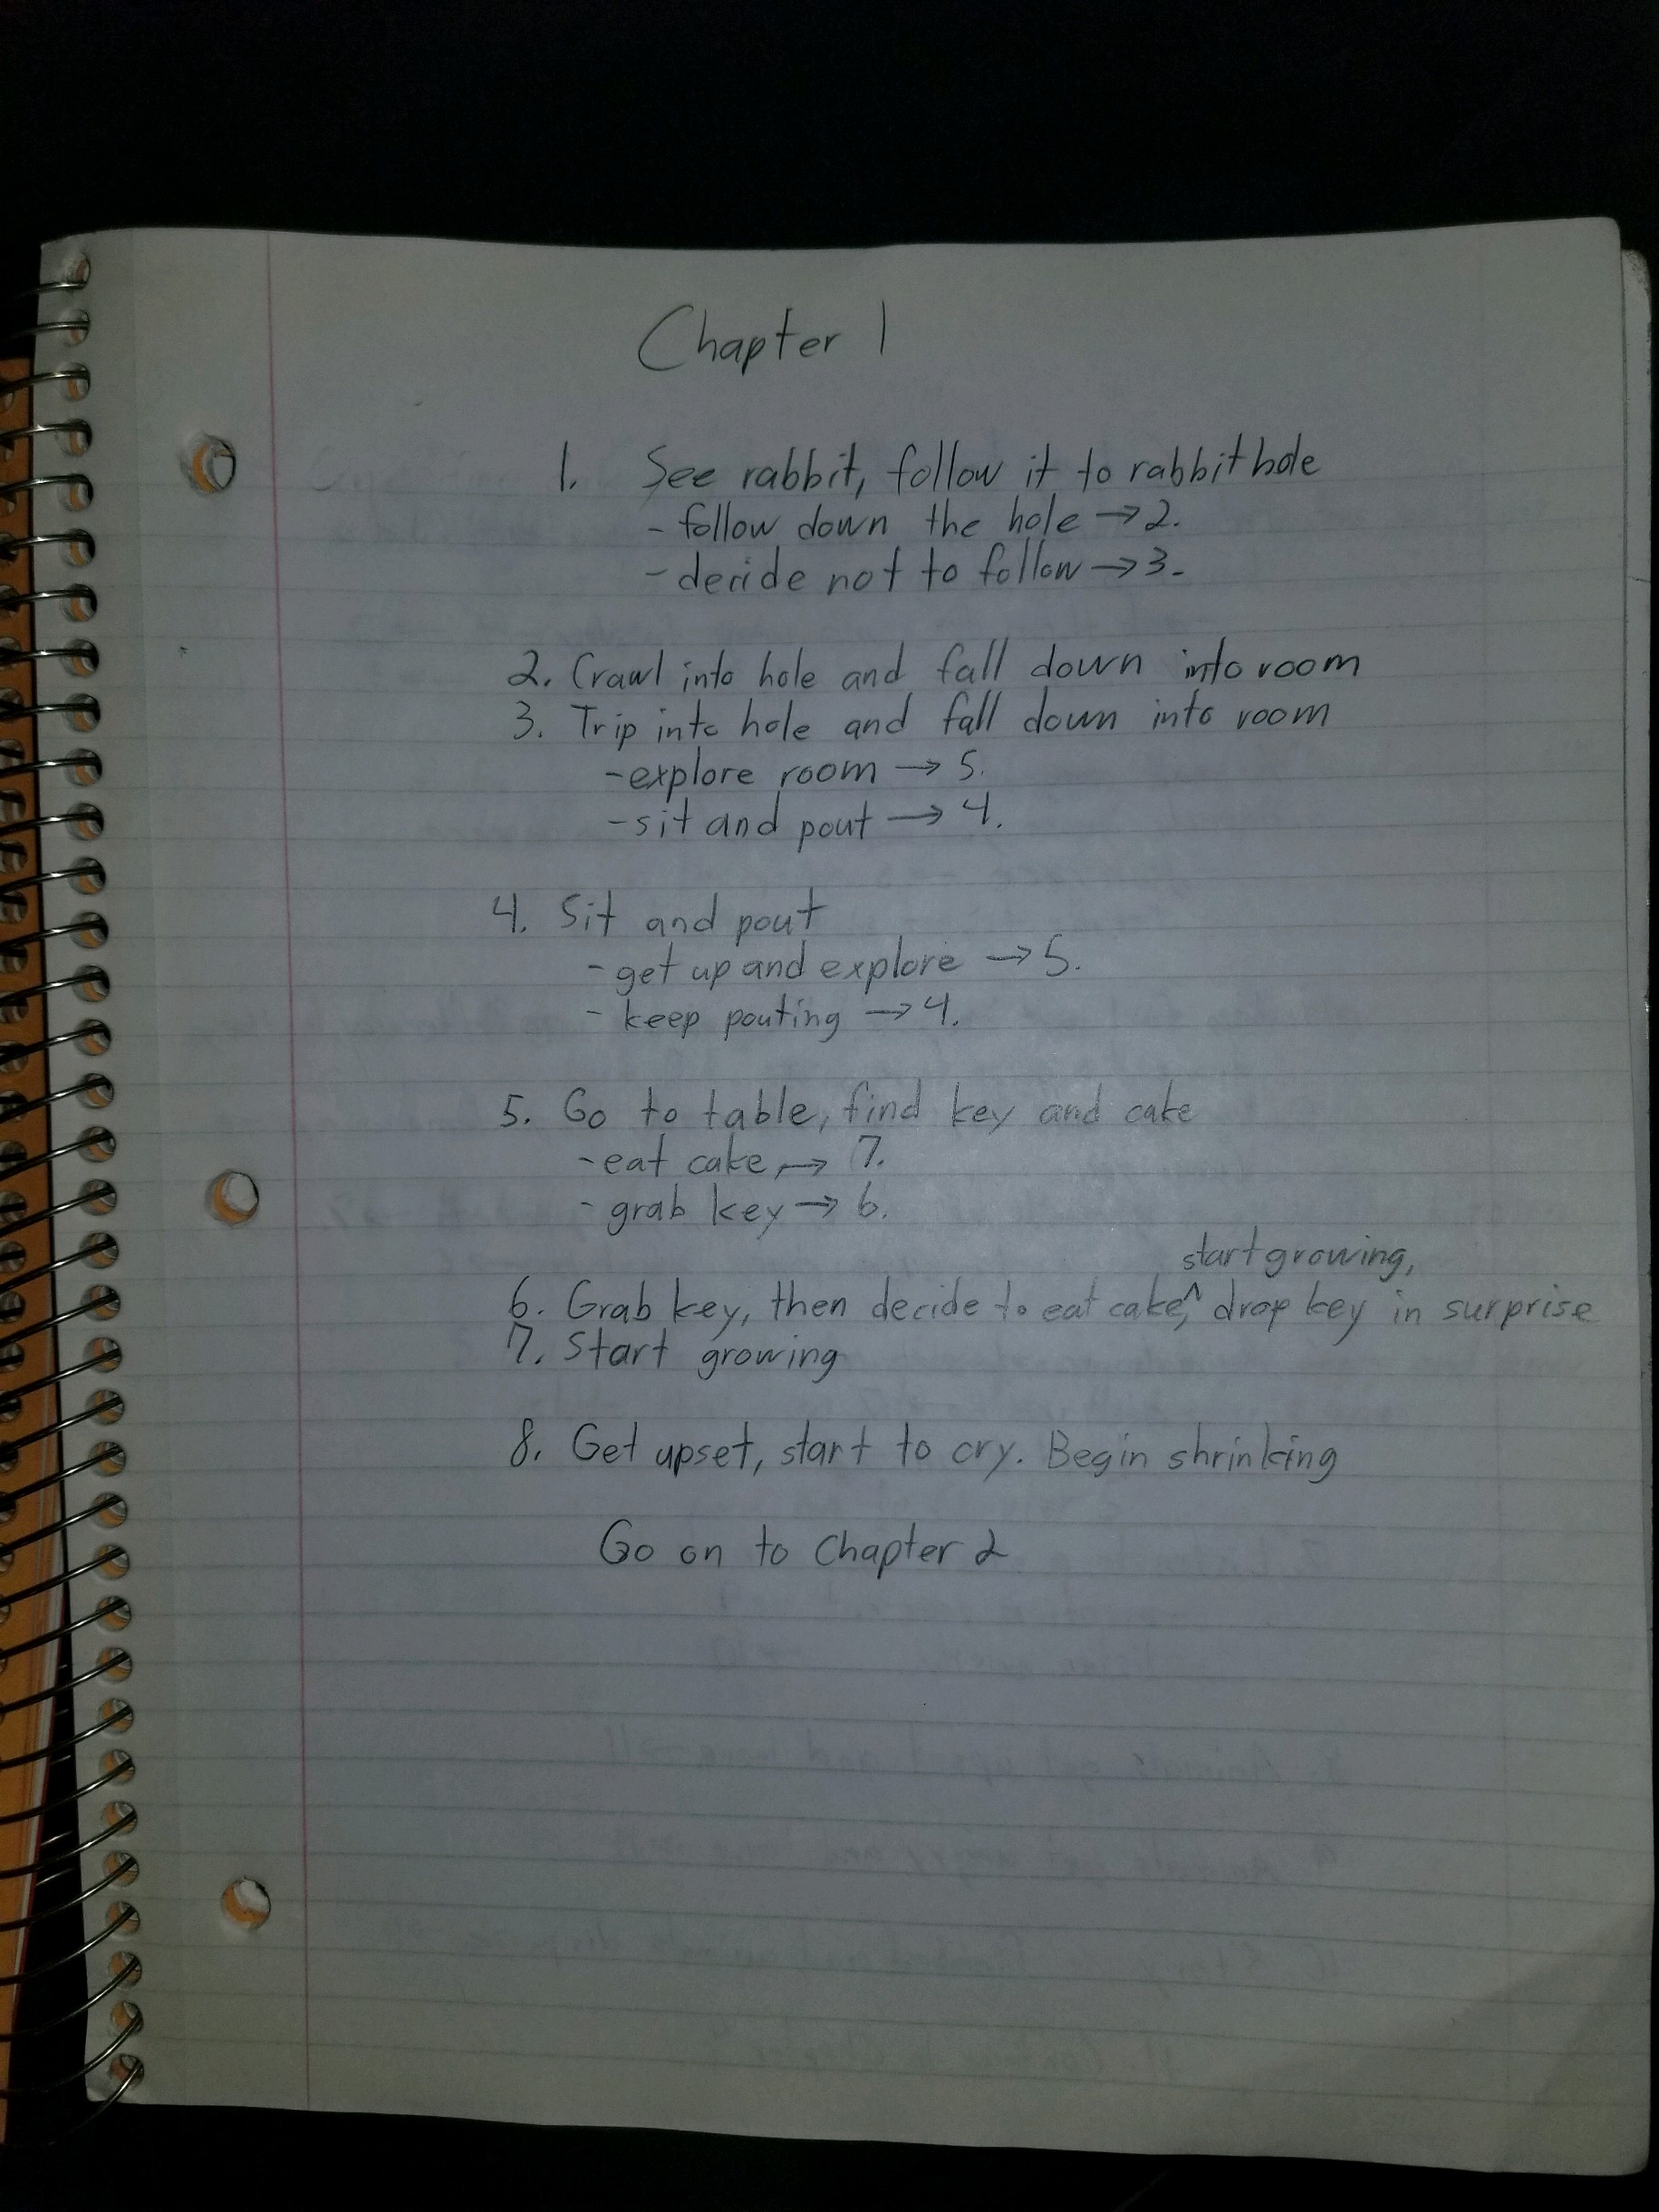 Chapter 1
1. See rabbit, follow it to rabbit hole
- follow down the hole → 2.
- decide not to follow → 3.
2. Crawl into hole and fall down into room
3. Trip into hole and fall down into room
- explore room → 5.
- sit and pout → 4.
4. Sit and pout
- get up and explore → 5.
- keep pouting → 4.
5. Go to table, find key and cake
- eat cake → 7.
- grab key → 6.
start growing,
6. Grab key, then decide to eat cake, ^ drop key in surprise
7. Start growing
8. Get upset, start to cry. Begin shrinking
Go on to Chapter 2